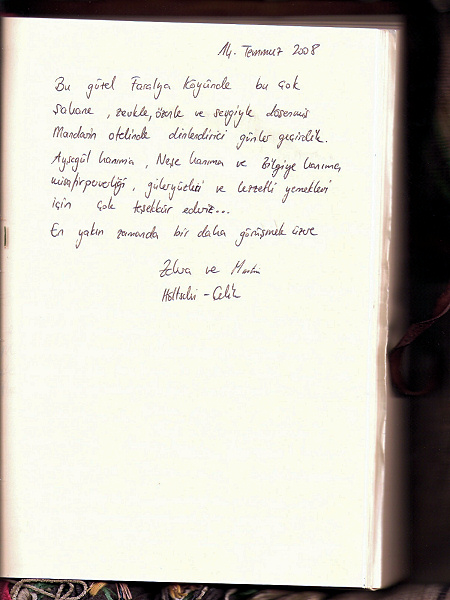 14. Temmuz 2008
Bu güzel Faralya Köyünde bu çok
şahane, zevkle, özenle ve sevgiyle döşenmiş
Mandarin otelinde dinlendirici günler geçirdik.
Ayşegül hanıma, Neşe hanıma ve Bilgiye hanıma,
misafirperverliği, güleryüzleri ve lezzetli yemekleri
için çok teşekkür ederiz...
En yakın zamanda bir daha görüşmek üzere
ve Martin
- Çelik